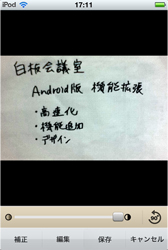 iPod 17:11
白板会議室
Android版 機能拡張
・高速化
・機能追加
・デザイン
90°
補正 編集 保存 キャンセル